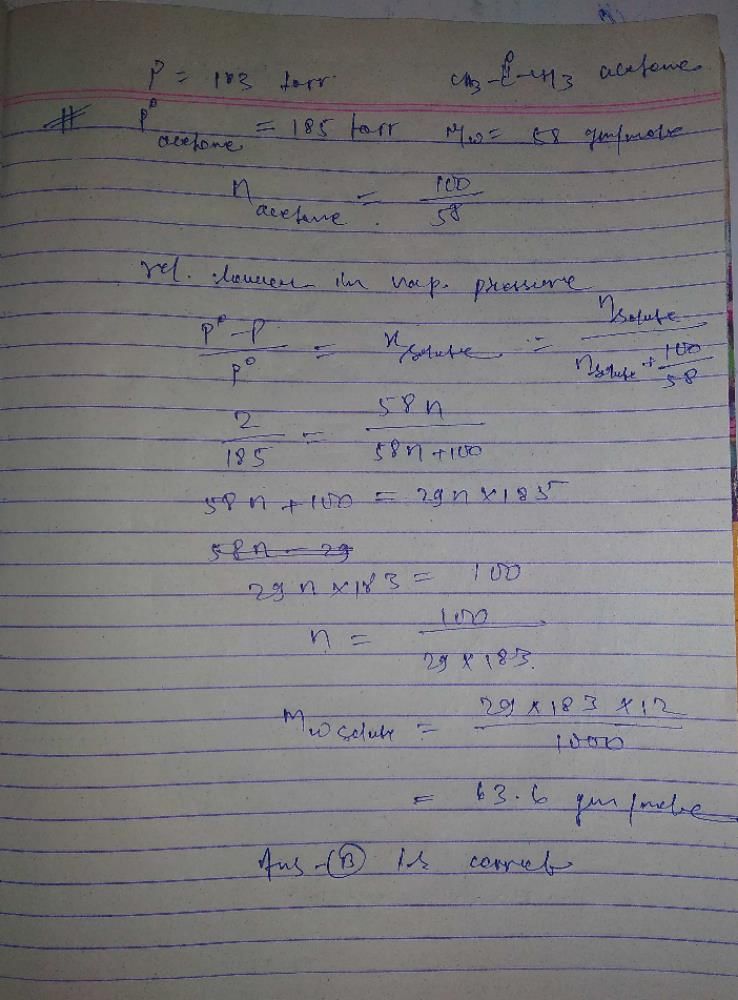 P = 183 torr CH3-C-CH3 acetone
O
# P° acetone = 185 torr Mw = 58 gm/mole
n acetone = 100/58
rel. lower in vap. pressure
P°-P/P° = x solute = n solute/n solute + 100/58
2/185 = 58n/58n+100
58n+100 = 29n×185
58n - 29
29n×183 = 100
n = 100/29×183.
Mw solute = 29×183×12/1000
= 63.6 gm/mole
Ans-(B) is correct